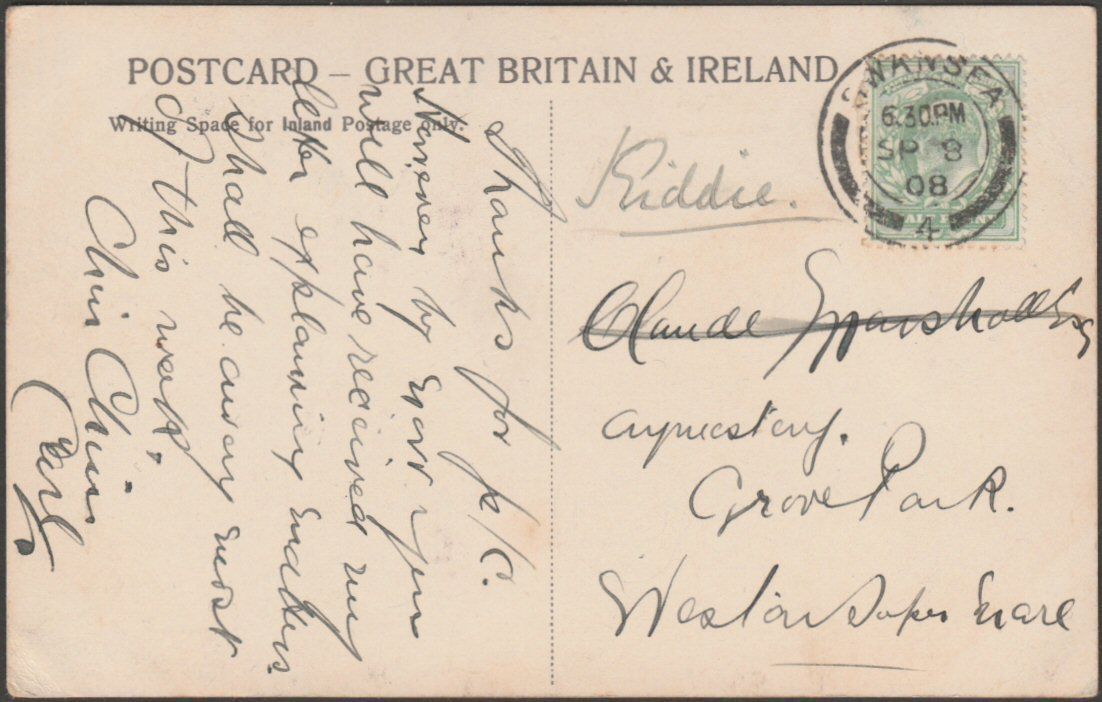 POSTCARD – GREAT BRITAIN & IRELAND
Writing Space for Inland Postage only.
SWANSEA
6.30PM
SP 8
08
4
Kiddie.
Claude Marshall Esq
Grove Park.
Weston Super Mare
Thanks for p/c.
by now you
will have received my
letter explaining matters.
Shall be away most
of this week.
Chin Chin